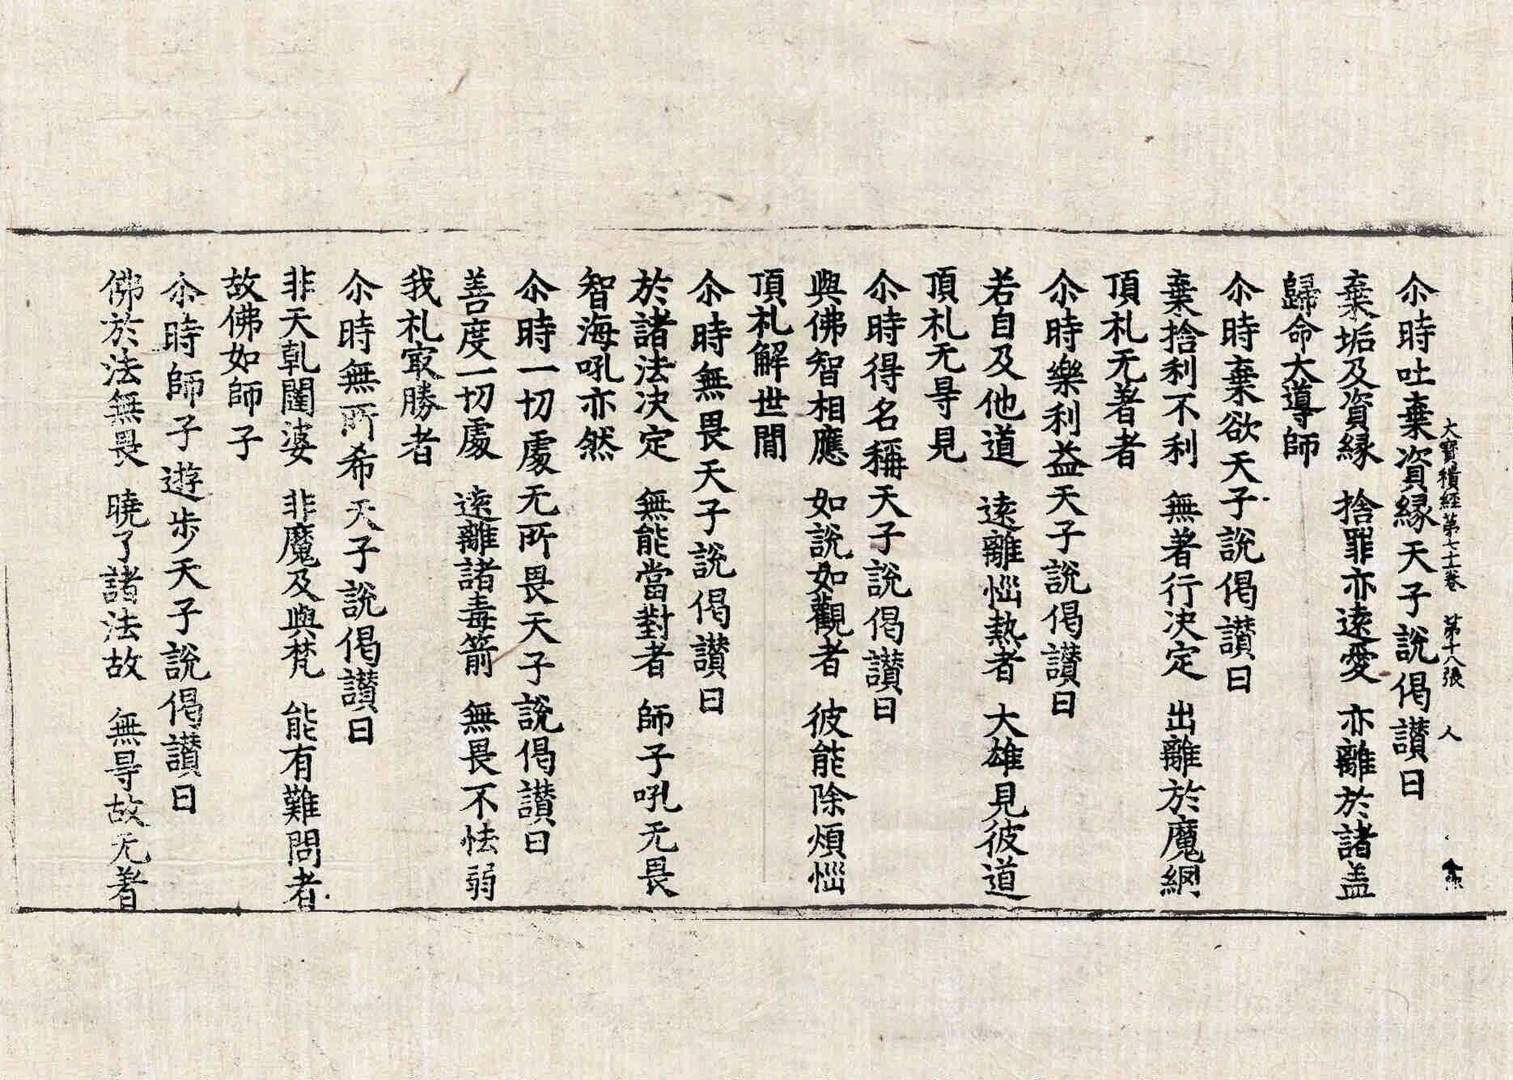 大寶積經第七十二卷 第十八張 人
尒時吐棄資縁天子說偈讃曰
棄垢及資縁 捨罪亦遠愛 亦離於諸盖
歸命大導師
尒時棄欲天子說偈讃曰
棄捨利不利 無著行决定 出離於魔網
頂札无著者
尒時樂利益天子說偈讃曰
若自及他道 遠離惱熱者 大雄見彼道
頂札无㝵見
尒時得名稱天子說偈讃曰
與佛智相應 如說如觀者 彼能除煩惱
頂札解世間
尒時無畏天子說偈讃曰
於諸法决定 無能當對者 師子吼无畏
智海吼亦然
尒時一切處无所畏天子說偈讃曰
善度一切處 遠離諸毒箭 無畏不怯弱
我札㝡勝者
尒時無所希天子說偈讃曰
非天乹闥婆 非魔及與梵 能有難問者
故佛如師子
尒時師子遊步天子說偈讃曰
佛於法無畏 曉了諸法故 無㝵故无著